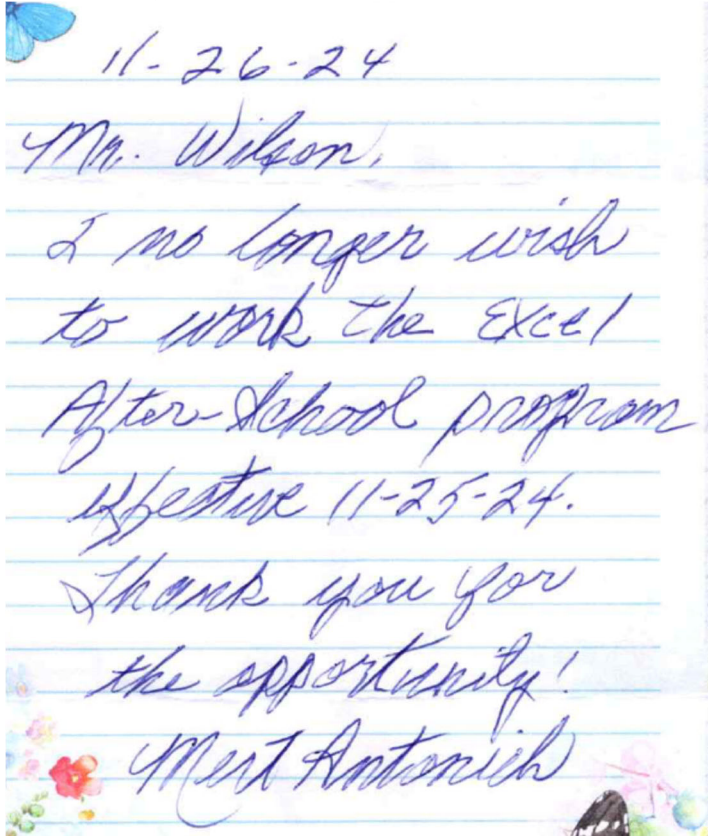 11-26-24
Mr. Wilson,
I no longer wish
to work the Excel
After-School program
effective 11-25-24.
Thank you for
the opportunity!
Mert Antonich